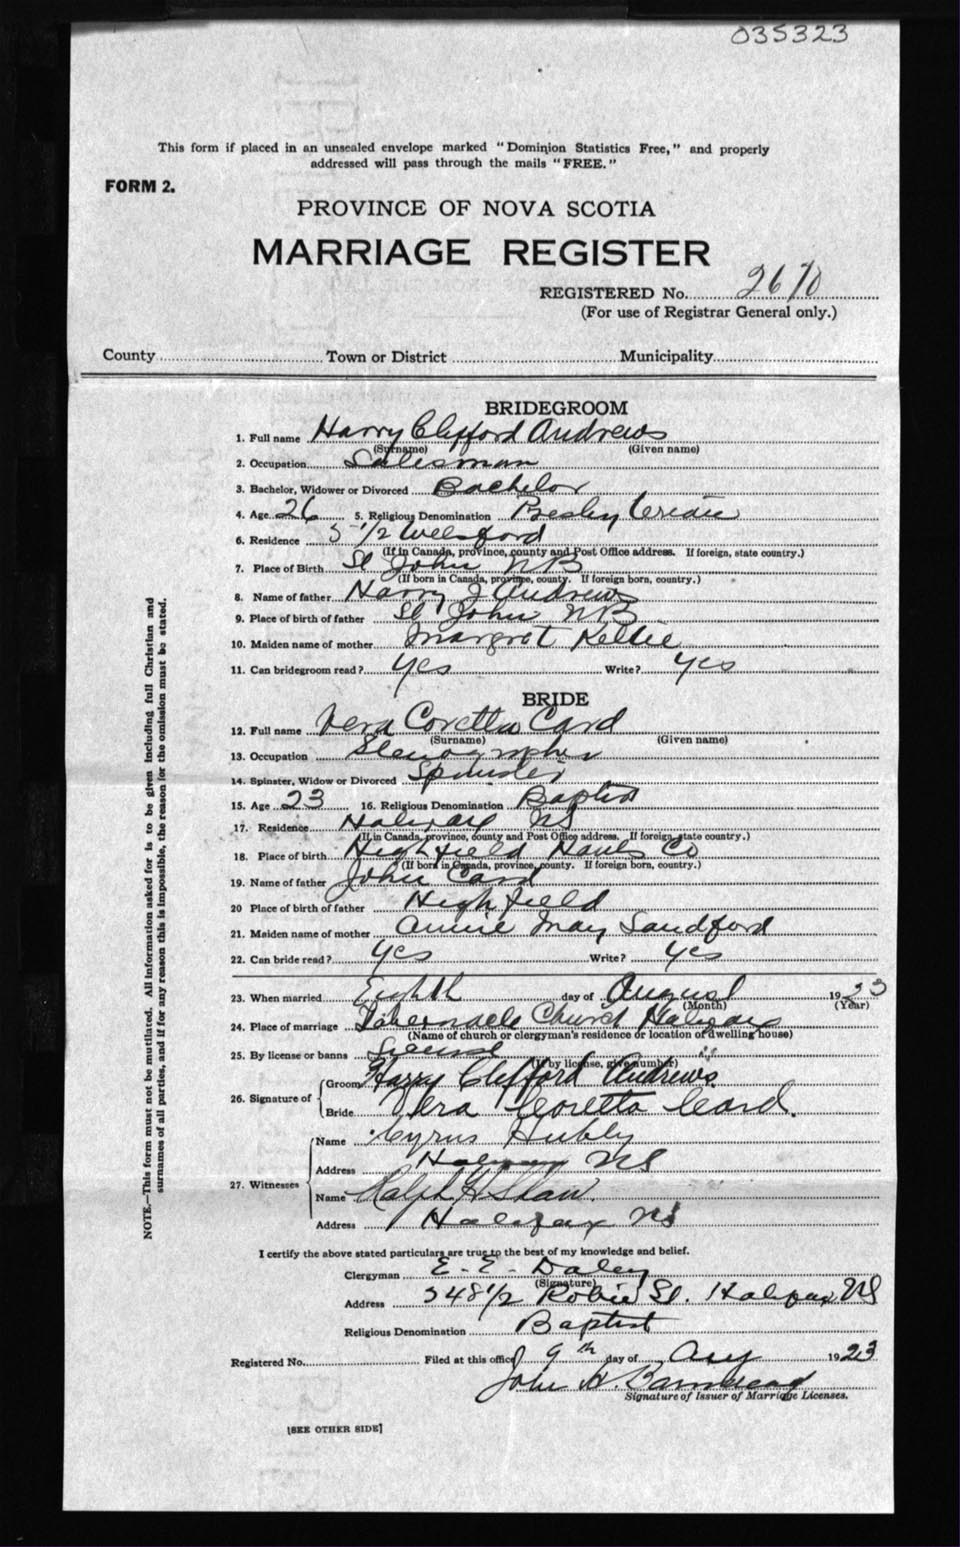 035323
This form if placed in an unsealed envelope marked "Dominion Statistics Free," and properly
addressed will pass through the mails "FREE."
FORM 2.
PROVINCE OF NOVA SCOTIA
MARRIAGE REGISTER
REGISTERED No. 2670
(For use of Registrar General only.)
County Town or District Municipality
BRIDEGROOM
1. Full name Harry Clifford Andrews
(Surname) (Given name)
2. Occupation Salesman
3. Bachelor, Widower or Divorced Bachelor
4. Age 26 5. Religious Denomination
6. Residence 5 1/2 Welsford
(If in Canada, province, county and Post Office address. If foreign, state country.)
7. Place of Birth St John NB
(If born in Canada, province, county. If foreign born, country.)
8. Name of father Harry J Andrews
9. Place of birth of father St John NB
10. Maiden name of mother Margrot Kellie
11. Can bridegroom read? yes Write? yes
BRIDE
12. Full name Vera Coretta Card
(Surname) (Given name)
13. Occupation Stenographer
14. Spinster, Widow or Divorced Spinster
15. Age 23 16. Religious Denomination Baptist
17. Residence Halifax NS
(If in Canada, province, county and Post Office address. If foreign, state country.)
18. Place of birth Highfield Hants Co
(If born in Canada, province, county. If foreign born, country.)
19. Name of father John Card
20 Place of birth of father Highfield
21. Maiden name of mother Annie May Sandford
22. Can bride read? yes Write? yes
23. When married Eighth day of August 1923
(Month) (Year)
24. Place of marriage Church Halifax
(Name of church or clergyman's residence or location of dwelling house)
25. By license or banns License
(If by license, give number)
26. Signature of Groom Harry Clifford Andrews.
Bride Vera Coretta Card.
27. Witnesses Name Cyrus Hubly
Address Halifax NS
Name Ralph H Shaw.
Address Halifax NS
I certify the above stated particulars are true to the best of my knowledge and belief.
Clergyman E. E. Daley
(Signature)
Address 348 1/2 Robie St. Halifax NS
Religious Denomination Baptist
Registered No. Filed at this office 9th day of Aug 1923
John H. Barnstead
Signature of Issuer of Marriage Licenses.
[SEE OTHER SIDE]
NOTE.—This form must not be mutilated. All information asked for is to be given including full Christian and
surnames of all parties, and if for any reason this is impossible, the reason for the omission must be stated.